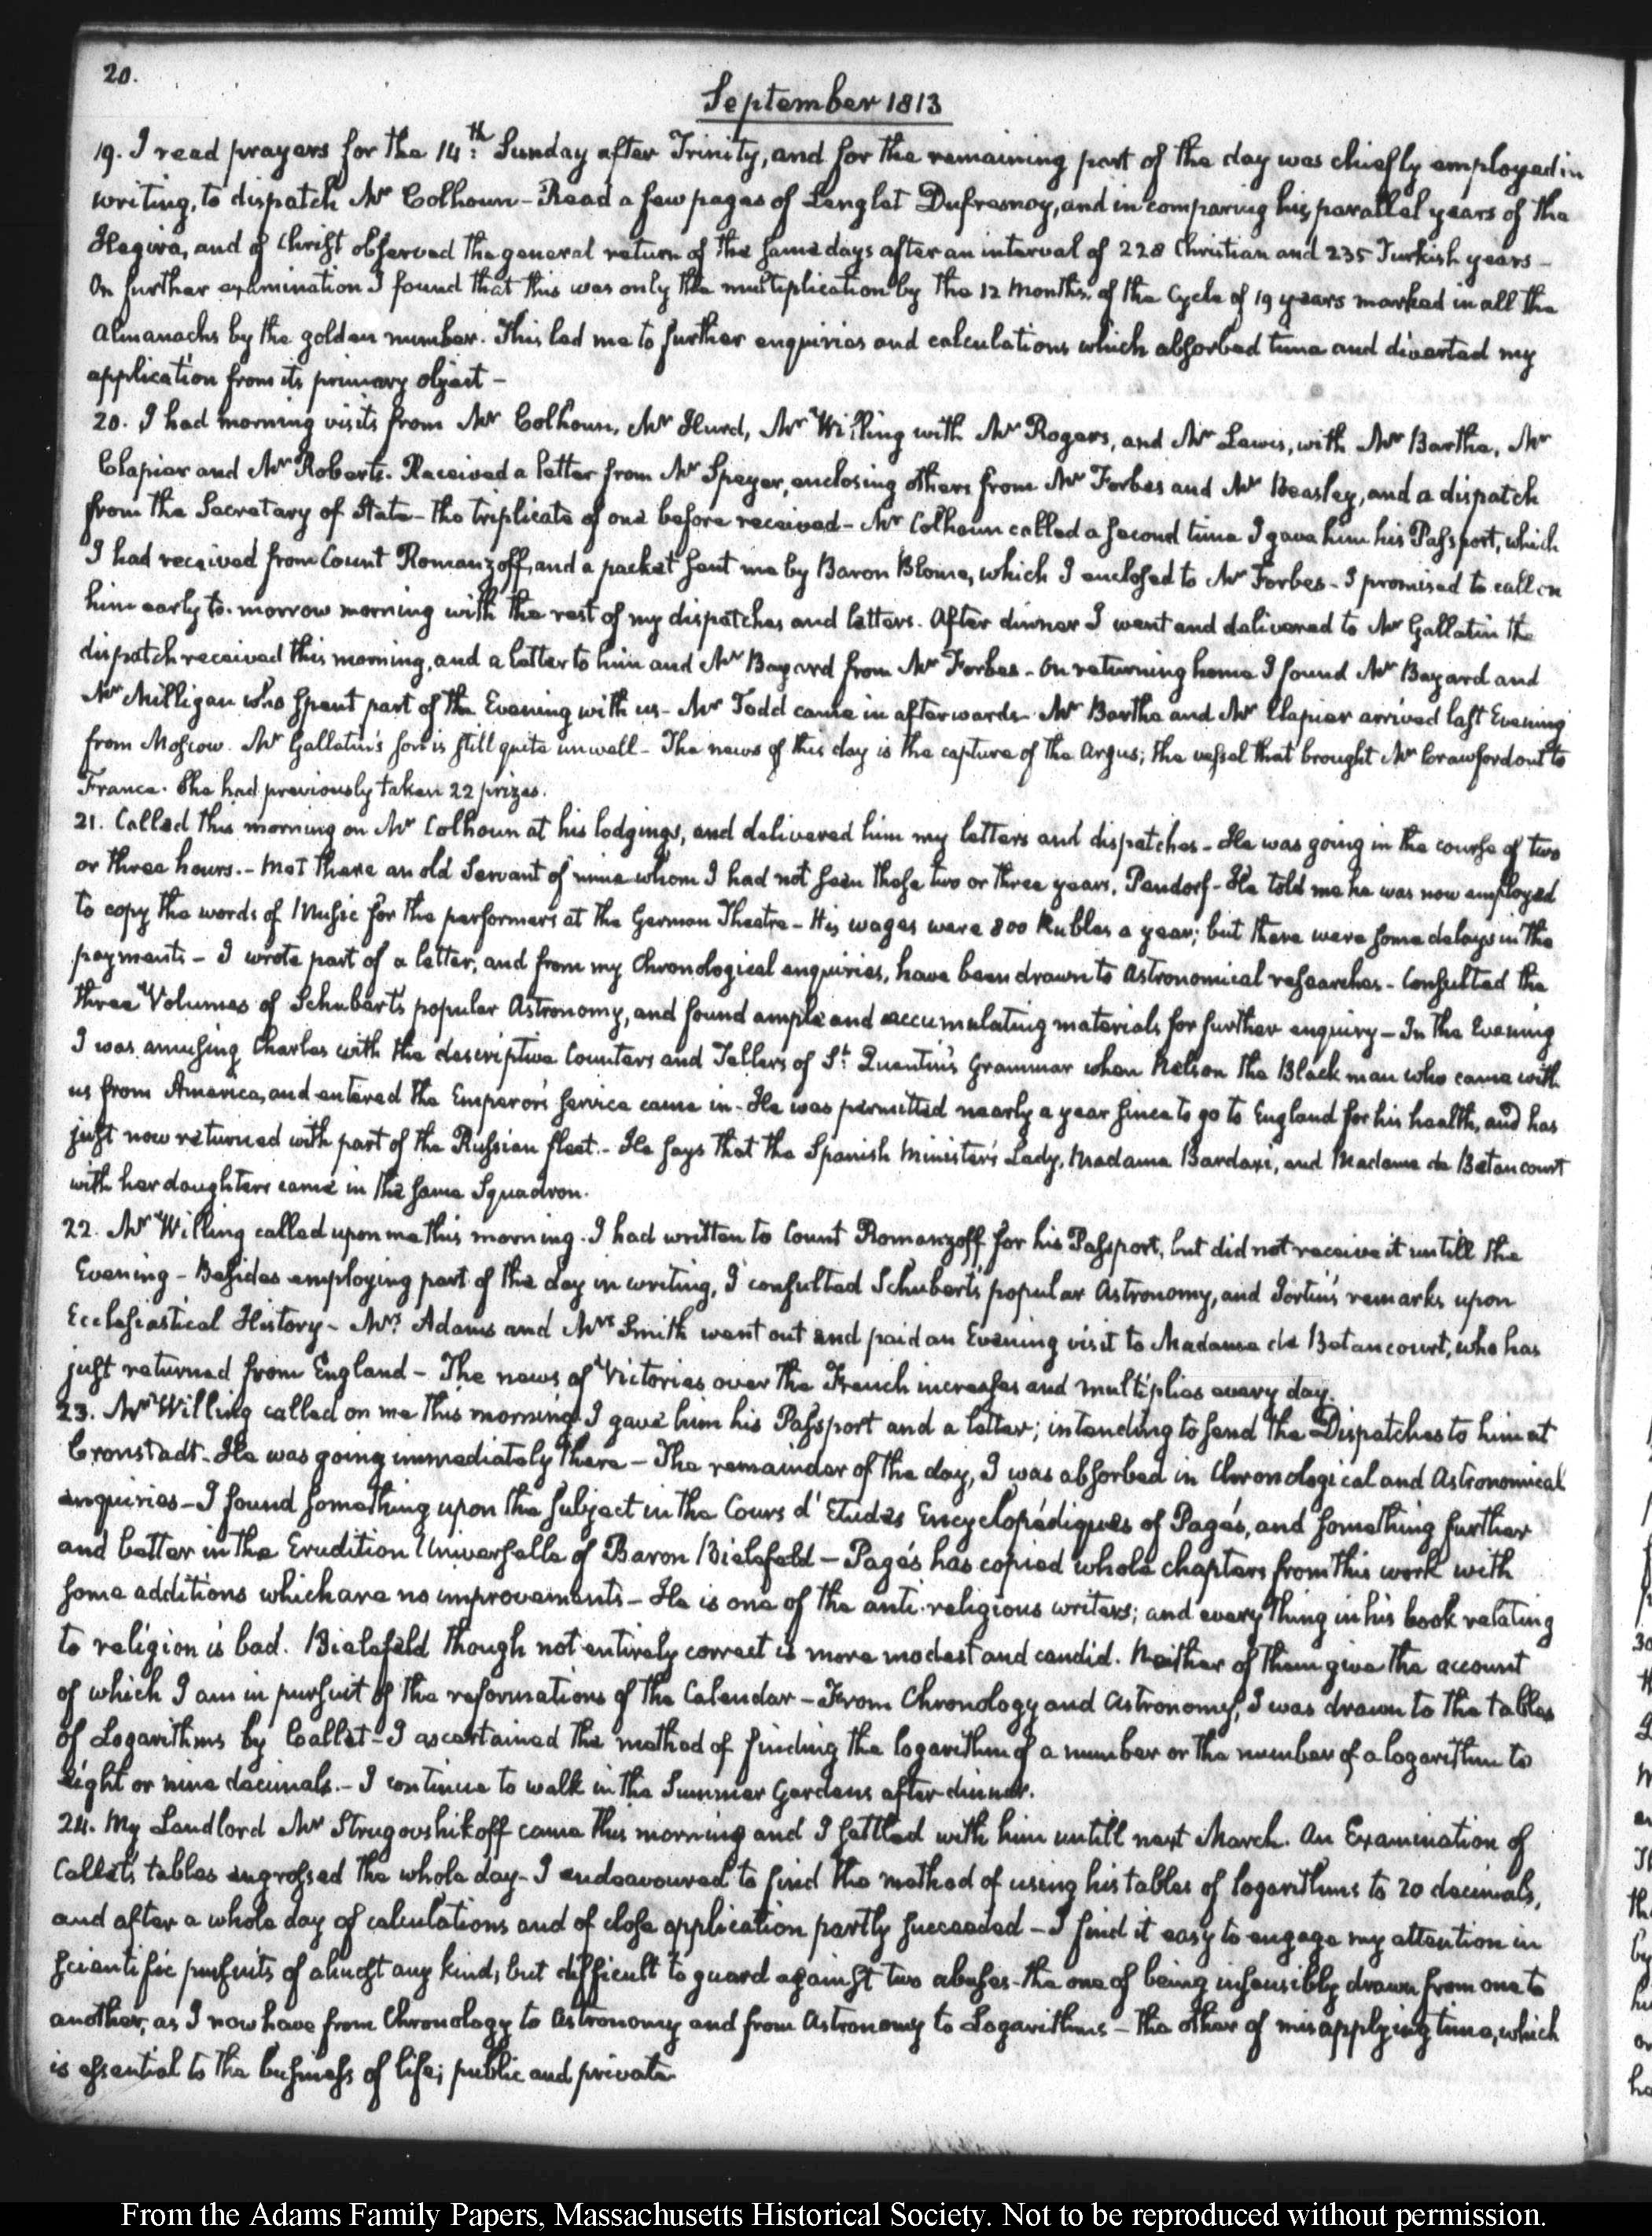 20.
September 1813
19. I read prayers for the 14:th Sunday after Trinity, and for the remaining part of the day was chiefly employed in
writing, to dispatch Mr Colhoun - Read a few pages of Lenglet Dufresnoy, and in comparing his parallel years of the
Hegira, and of Christ observed the general return of the same days after an interval of 228 Christian and 235 Turkish years -
On further examination I found that this was only the multiplication by the 12 Months, of the Cycle of 19 years marked in all the
Almanachs by the golden number. This led me to further enquiries and calculations which absorbed time and diverted my
application from its primary object -
20. I had morning visits from Mr Colhoun, Mr Hurd, Mr Willing with Mr Rogers, and Mr Lewis, with Mr Barthe, Mr
Clapier and Mr Roberts. Received a letter from Mr Speyer, enclosing others from Mr Forbes and Mr Beasley, and a dispatch
from the Secretary of State - the triplicate of one before received - Mr Colhoun called a second time I gave him his Passport, which
I had received from Count Romanzoff, and a packet sent me by Baron Blome, which I enclosed to Mr Forbes - I promised to call on
him early to-morrow morning with the rest of my dispatches and letters. After dinner I went and delivered to Mr Gallatin the
dispatch received this morning, and a letter to him and Mr Bayard from Mr Forbes - On returning home I found Mr Bayard and
Mr Milligan who spent part of the Evening with us - Mr Todd came in afterwards - Mr Barthe and Mr Clapier arrived last Evening
from Moscow. Mr Gallatin's son is still quite unwell - The news of this day is the capture of the Argus; the vessel that brought Mr Crawford out to
France. She had previously taken 22 prizes.
21. Called this morning on Mr Colhoun at his lodgings, and delivered him my letters and dispatches - He was going in the course of two
or three hours. - Met there an old Servant of mine whom I had not seen these two or three years, Pendorf - He told me he was now employed
to copy the words of Music for the performers at the German Theatre - His wages were 800 Rubles a year; but there were some delays in the
payments - I wrote part of a letter, and from my Chronological enquiries, have been drawn to Astronomical researches - Consulted the
three Volumes of Schubert's popular Astronomy, and found ample and accumulating materials for further enquiry - In the Evening
I was amusing Charles with the descriptive Counters and Tellers of St: Quentin's Grammar when Nelson the Black man who came with
us from America, and entered the Emperor's service came in - He was permitted nearly a year since to go to England for his health, and has
just now returned with part of the Russian fleet. - He says that the Spanish Minister's Lady, Madame Bardaxi, and Madame de Betancourt
with her daughters came in the same Squadron.
22. Mr Willing called upon me this morning. I had written to Count Romanzoff for his Passport, but did not receive it untill the
Evening - Besides employing part of the day in writing, I consulted Schubert's popular Astronomy, and Jortin's remarks upon
Ecclesiastical History - Mrs Adams and Mrs Smith went out and paid an Evening visit to Madame de Betancourt, who has
just returned from England - The news of Victories over the French increases and multiplies every day.
23. Mr Willing called on me this morning. I gave him his Passport and a letter; intending to send the Dispatches to him at
Cronstadt. He was going immediately there - The remainder of the day, I was absorbed in Chronological and Astronomical
enquiries - I found something upon the subject in the Cours d'Etudes Encyclopédiques of Pagés, and something further
and better in the Erudition Universelle of Baron Bielefeld - Pagés has copied whole chapters from this work with
some additions which are no improvements - He is one of the anti-religious writers; and every thing in his book relating
to religion is bad. Bielefeld though not entirely correct is more modest and candid. Neither of them give the account
of which I am in pursuit of the reformations of the Calendar - From Chronology and Astronomy, I was drawn to the tables
of Logarithms by Callet - I ascertained the method of finding the logarithm of a number or the number of a logarithm to
eight or nine decimals. - I continue to walk in the Summer Gardens after dinner.
24. My Landlord Mr Strugovshikoff came this morning and I settled with him untill next March. An Examination of
Callet's tables engrossed the whole day - I endeavoured to find the method of using his tables of logarithms to 20 decimals,
and after a whole day of calculations and of close application partly succeeded - I find it easy to engage my attention in
scientific pursuits of almost any kind, but difficult to guard against two abuses - the one of being insensibly drawn from one to
another, as I now have from Chronology to Astronomy and from Astronomy to Logarithms - the other of misapplying time, which
is essential to the business of life; public and private.
From the Adams Family Papers, Massachusetts Historical Society. Not to be reproduced without permission.